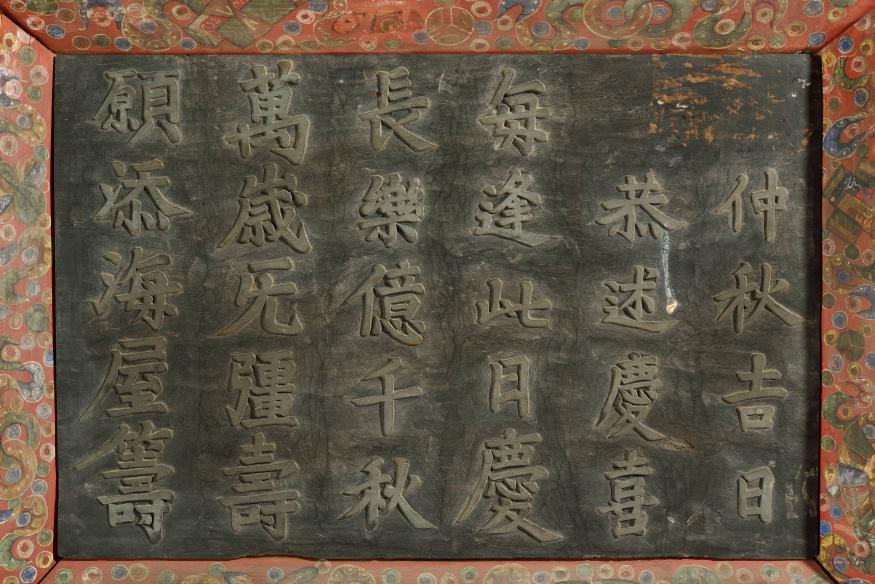 仲秋吉日
恭述慶喜
每逢此日慶
長樂億千秋
萬歲无彊壽
願添海屋籌